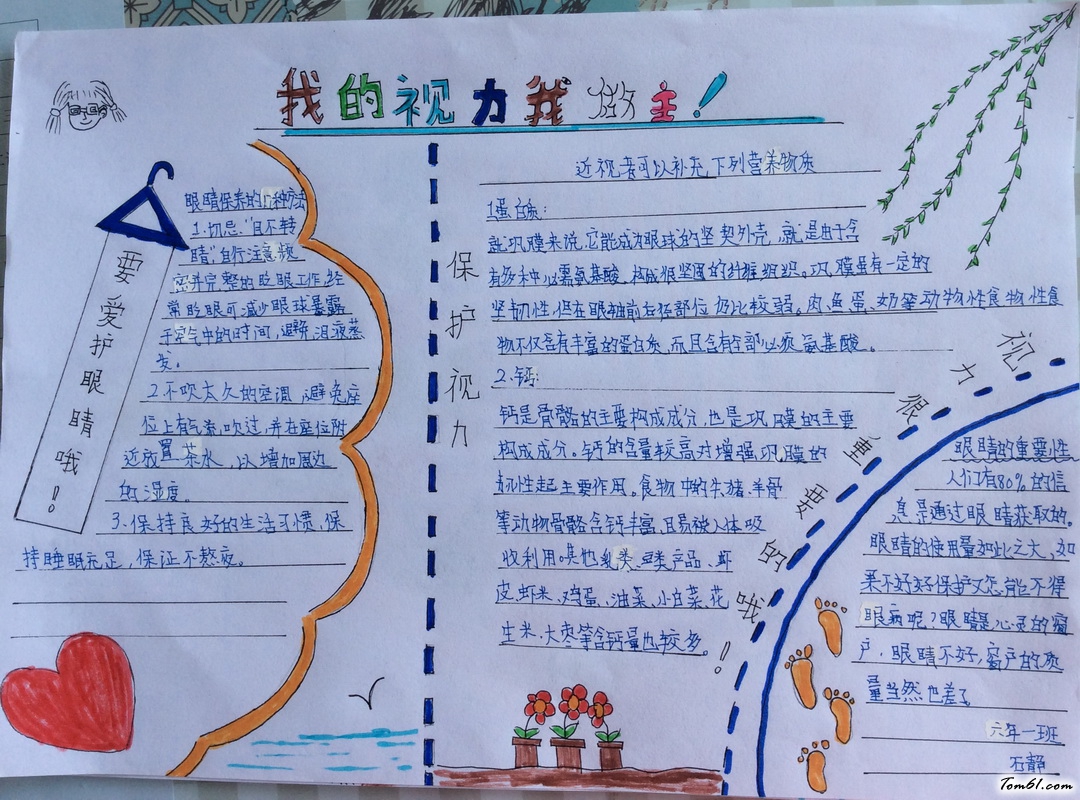 我的视力我做主！
要爱护眼睛哦！
眼睛保养的几种方法
1.切忌"目不转
睛"自行注意频
密并完整的眨眼工作，经
常眨眼可减少眼球暴露
于空气中的时间，避免泪液蒸
发。
2.不吹太久的空调，避免座
位上有气流吹过，并在座位附
近放置茶水，以增加周边
的湿度。
3、保持良好的生活习惯，保
持睡眠充足，保证不熬夜。
保护视力
近视者可以补充下列营养物质
1蛋白质：
就巩膜来说，它能成为眼球的坚契外壳，就是由于含
有多种必需氨基酸，构成很坚固的纤维组织。巩膜虽有一定的
坚韧性，但在眼轴前后径部位仍比较弱。肉、鱼、蛋、奶等动物性食物性食
物不仅含有丰富的蛋白质，而且含有全部必须氨基酸。
2.钙：
钙是骨骼的主要构成成分，也是巩膜的主要
构成成分。钙的含量较高对增强巩膜的
韧性起主要作用。食物中的牛、猪、羊骨
等动物骨骼含钙丰富，且易被人体吸
收利用。其他乳类、豆类产品、虾
皮、虾米、鸡蛋、油菜、小白菜、花
生米、大枣等含钙量也较多。
视力很重要的哦！
眼睛的重要性
人们有80%的信
息是通过眼睛获取的。
眼睛的使用量如此之大，如
果不好好保护又怎能不得
眼病呢？眼睛是心灵的窗
户，眼睛不好，窗户的质
量当然也差了
六年一班
石静
Tom61.com